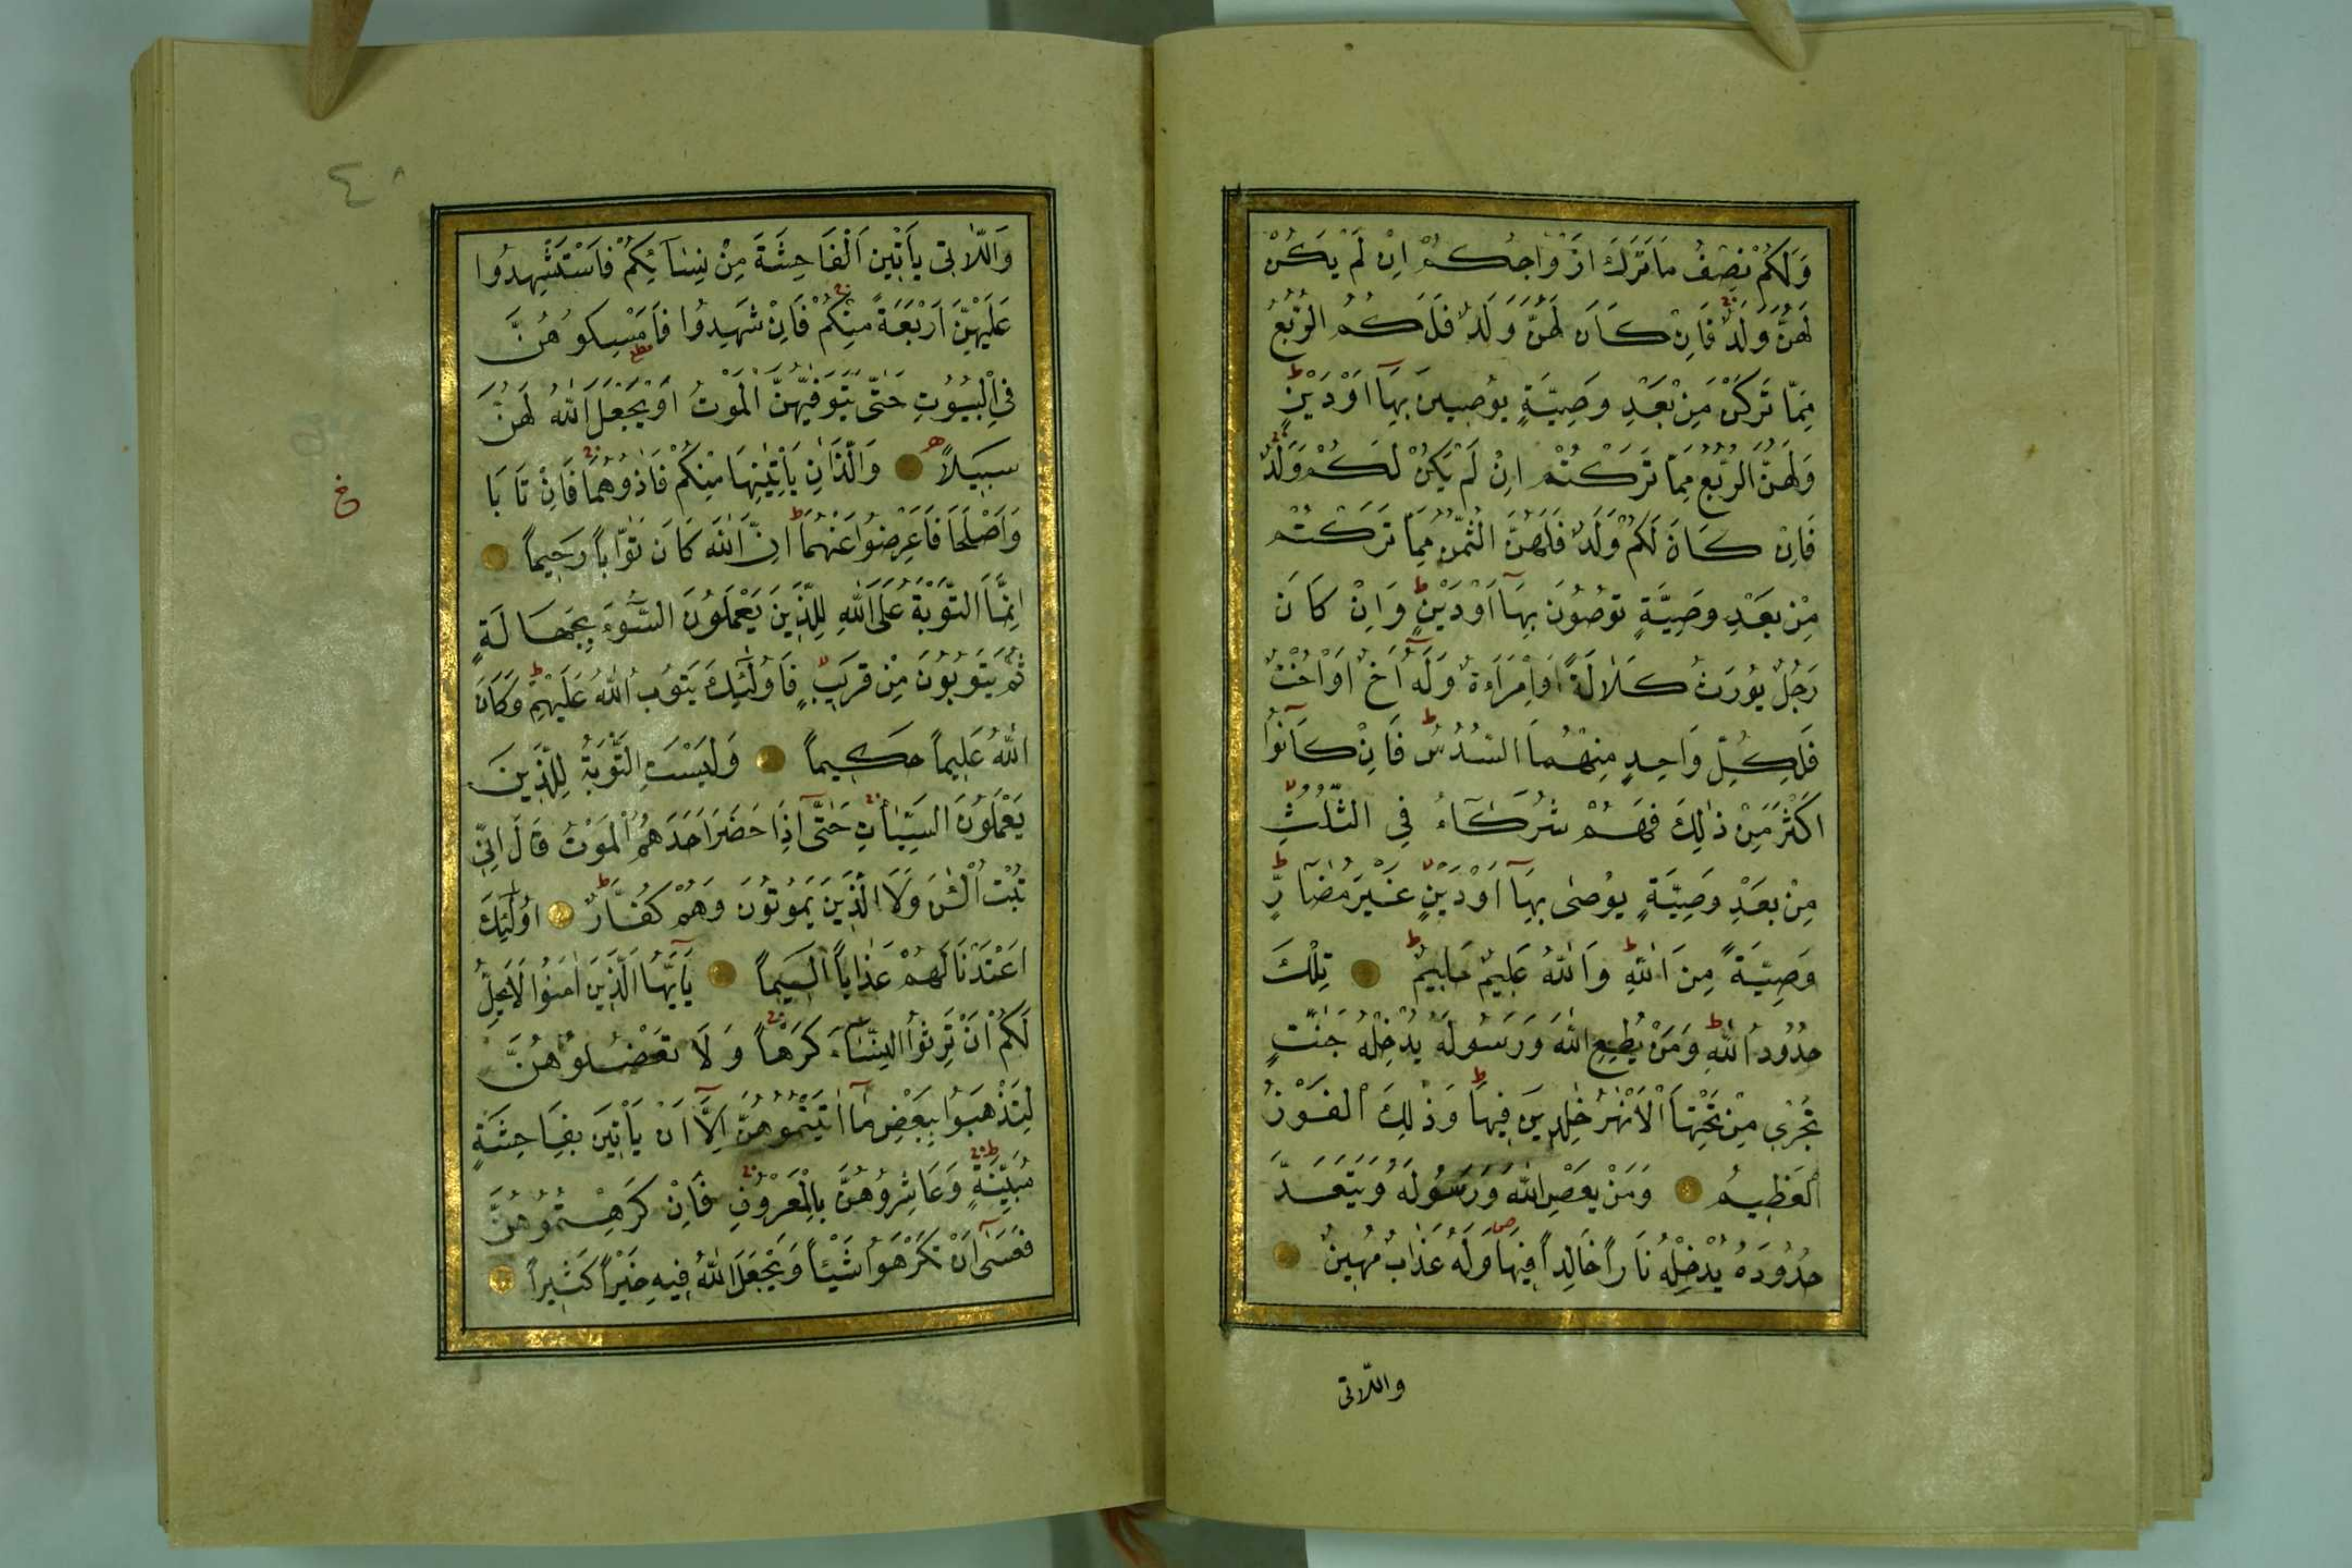 وَلَكُمْ نِصْفُ مَا تَرَكَ اَزْوَاجُكُمْ اِنْ لَمْ يَكُنْ
لَهُنَّ وَلَدٌ فَاِنْ كَانَ لَهُنَّ وَلَدٌ فَلَكُمُ الرُّبُعُ
مِمَّا تَرَكْنَ مِنْ بَعْدِ وَصِيَّةٍ يُوصِينَ بِهَآ اَوْ دَيْنٍ
وَلَهُنَّ الرُّبُعُ مِمَّا تَرَكْتُمْ اِنْ لَمْ يَكُنْ لَكُمْ وَلَدٌ
فَاِنْ كَانَ لَكُمْ وَلَدٌ فَلَهُنَّ الثُّمُنُ مِمَّا تَرَكْتُمْ
مِنْ بَعْدِ وَصِيَّةٍ تُوصُونَ بِهَآ اَوْ دَيْنٍ وَاِنْ كَانَ
رَجُلٌ يُورَثُ كَلَالَةً اَوِ امْرَاَةٌ وَلَهُٓ اَخٌ اَوْ اُخْتٌ
فَلِكُلِّ وَاحِدٍ مِنْهُمَا السُّدُسُ فَاِنْ كَانُٓوا
اَكْثَرَ مِنْ ذٰلِكَ فَهُمْ شُرَكَآءُ فِي الثُّلُثِ
مِنْ بَعْدِ وَصِيَّةٍ يُوصٰى بِهَآ اَوْ دَيْنٍ غَيْرَ مُضَآرٍّ
وَصِيَّةً مِنَ اللّٰهِ وَاللّٰهُ عَلِيمٌ حَلِيمٌ تِلْكَ
حُدُودُ اللّٰهِ وَمَنْ يُطِعِ اللّٰهَ وَرَسُولَهُ يُدْخِلْهُ جَنّٰتٍ
تَجْرِي مِنْ تَحْتِهَا الْاَنْهٰرُ خٰلِدِينَ فِيهَا وَذٰلِكَ الْفَوْزُ
الْعَظِيمُ وَمَنْ يَعْصِ اللّٰهَ وَرَسُولَهُ وَيَتَعَدَّ
حُدُودَهُ يُدْخِلْهُ نَاراً خَالِداً فِيهَا وَلَهُ عَذَابٌ مُهِينٌ
واللّاتى
٤٨
وَاللّٰاتِى يَاْتِينَ الْفَاحِشَةَ مِنْ نِسَآئِكُمْ فَاسْتَشْهِدُوا
عَلَيْهِنَّ اَرْبَعَةً مِنْكُمْ فَاِنْ شَهِدُوا فَاَمْسِكُوهُنَّ
فِي الْبُيُوتِ حَتّٰى يَتَوَفّٰيهُنَّ الْمَوْتُ اَوْ يَجْعَلَ اللّٰهُ لَهُنَّ
سَبِيلاً وَالَّذَانِ يَاْتِيٰنِهَا مِنْكُمْ فَاٰذُوهُمَا فَاِنْ تَابَا
وَاَصْلَحَا فَاَعْرِضُوا عَنْهُمَا اِنَّ اللّٰهَ كَانَ تَوَّاباً رَحِيماً
اِنَّمَا التَّوْبَةُ عَلَى اللّٰهِ لِلَّذِينَ يَعْمَلُونَ السُّٓوءَ بِجَهَالَةٍ
ثُمَّ يَتُوبُونَ مِنْ قَرِيبٍ فَاُولٰٓئِكَ يَتُوبُ اللّٰهُ عَلَيْهِمْ وَكَانَ
اللّٰهُ عَلِيماً حَكِيماً وَلَيْسَتِ التَّوْبَةُ لِلَّذِينَ
يَعْمَلُونَ السَّيِّاٰتِ حَتّٰٓى اِذَا حَضَرَ اَحَدَهُمُ الْمَوْتُ قَالَ اِنِّي
تُبْتُ الْـٰٔنَ وَلَا الَّذِينَ يَمُوتُونَ وَهُمْ كُفَّارٌ اُولٰٓئِكَ
اَعْتَدْنَا لَهُمْ عَذَاباً اَلِيماً يَآ اَيُّهَا الَّذِينَ اٰمَنُوا لَا يَحِلُّ
لَكُمْ اَنْ تَرِثُوا النِّسَآءَ كَرْهاً وَلَا تَعْضُلُوهُنَّ
لِتَذْهَبُوا بِبَعْضِ مَآ اٰتَيْتُمُوهُنَّ اِلَّآ اَنْ يَاْتِينَ بِفَاحِشَةٍ
مُبَيِّنَةٍ وَعَاشِرُوهُنَّ بِالْمَعْرُوفِ فَاِنْ كَرِهْتُمُوهُنَّ
فَعَسٰٓى اَنْ تَكْرَهُوا شَيْئاً وَيَجْعَلَ اللّٰهُ فِيهِ خَيْراً كَثِيراً